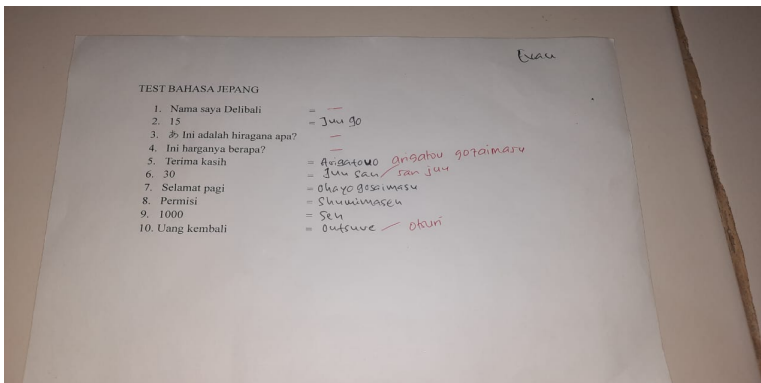 Evan
TEST BAHASA JEPANG
1. Nama saya Delibali = —
2. 15 = Juu go
3. あ Ini adalah hiragana apa? —
4. Ini harganya berapa? —
5. Terima kasih = Arigatouo arigatou gozaimasu
6. 30 = Juu san / san juu
7. Selamat pagi = ohayo gosaimasu
8. Permisi = Shumimasen
9. 1000 = Sen
10. Uang kembali = outsuve — otsuri